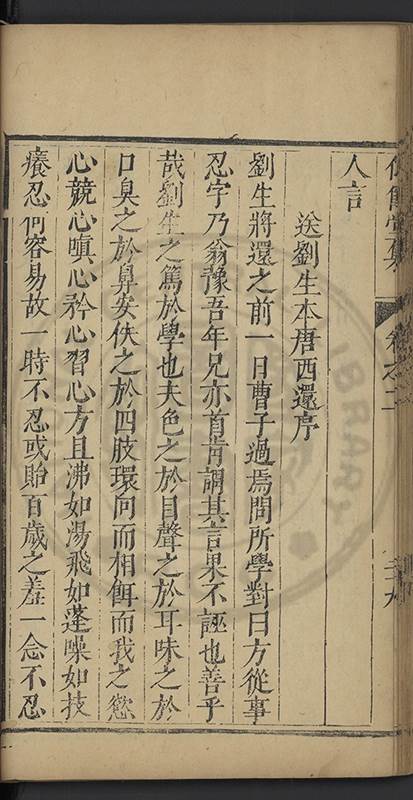 人言
送劉生本唐西還序
劉生將還之前一日曹子過焉問所學對曰方從事
忍字乃翁豫吾年兄亦首肯謂其言果不誣也善乎
哉劉生之篤於學也夫色之於目聲之於耳味之於
口臭之於鼻安佚之於四肢環向而相餌而我之慾
心競心嗔心矜心習心方且沸如湯飛如蓬噪如技
癢忍何容易故一時不忍或貽百歲之羞一念不忍